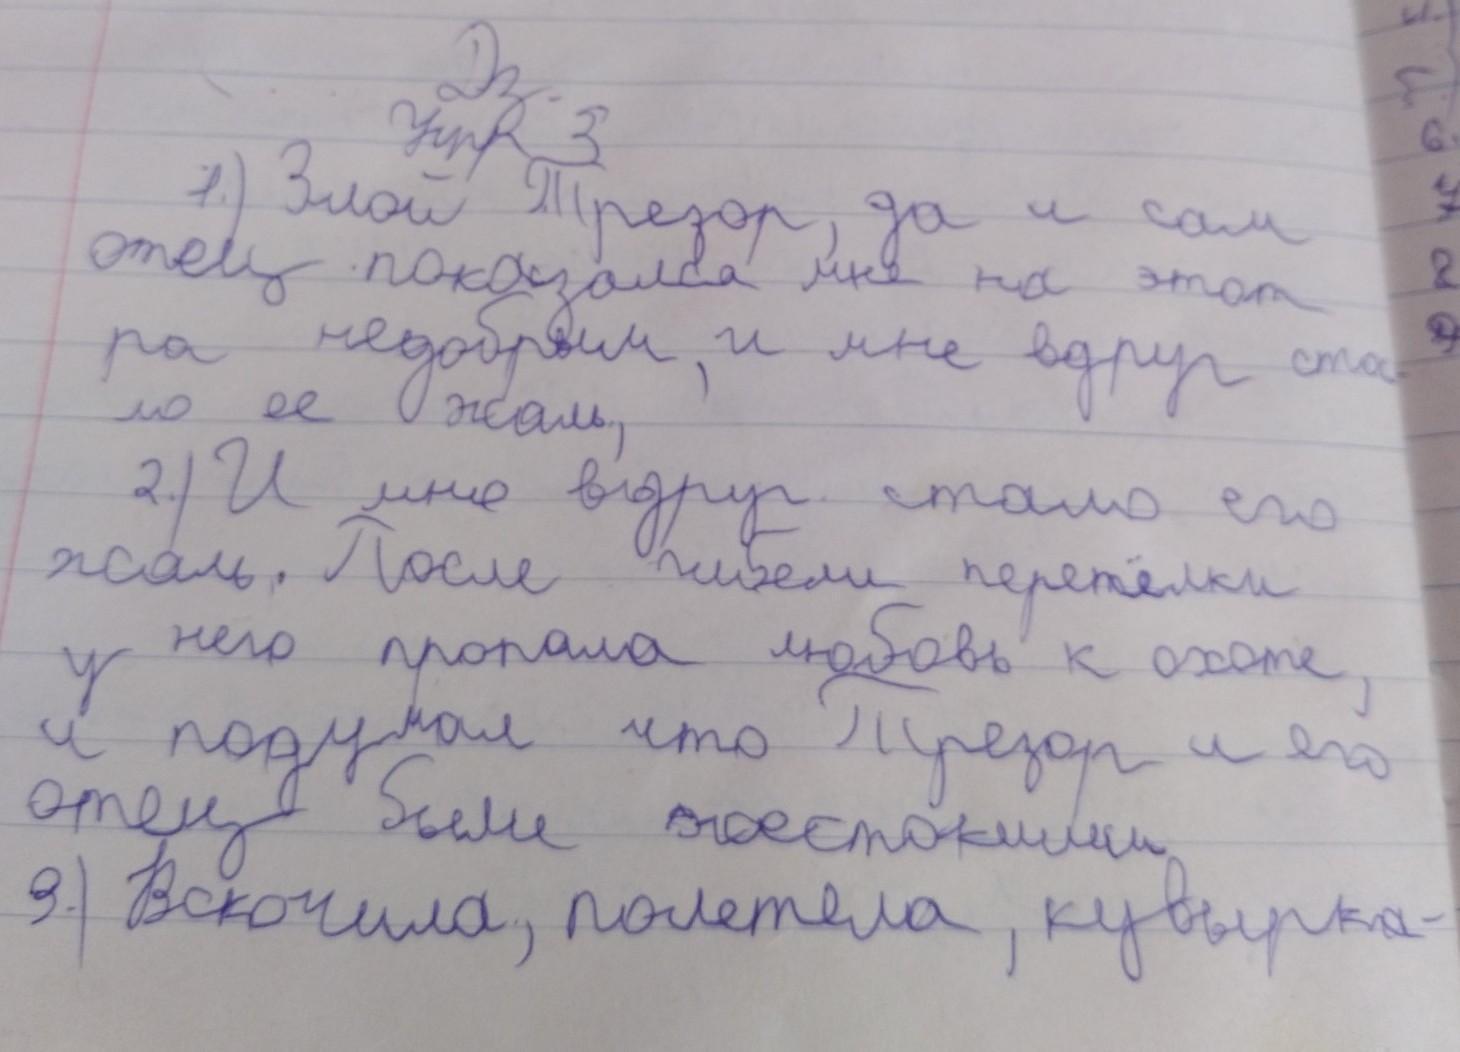 Дз.
Упр 3
1.) Злой Трезор, да и сам
отец показался мне на этот
ра недобрым, и мне вдруг ста-
ло ее жаль,
2.) И мне вдруг стало его
жаль. После гибели перепёлки
у него пропала любовь к охоте,
и подумал что Трезор и его
отец были жестокими
3.) Вскочила, полетела, кувырка-
6.
7
8
9